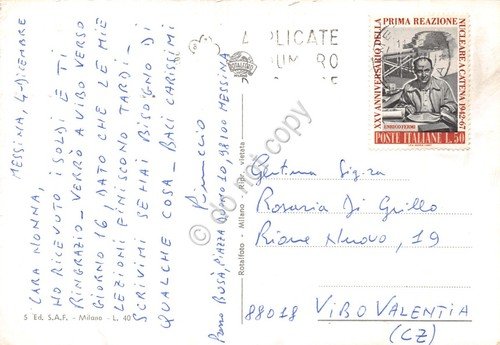 MESSINA, 4-DICEMBRE
CARA NONNA,
HO RICEVUTO I SOLDI E TI
RINGRAZIO - VERRÒ A VIBO VERSO
GIORNO 16, DATO CHE LE MIE
LEZIONI FINISCONO TARDI -
SCRIVIMI SE HAI BISOGNO DI
QUALCHE COSA - BACI CARISSIMI
Pinuccio
BUSÀ, PIAZZA DUOMO 20, 98100 MESSINA
5 Ed. S.A.F. - Milano - L. 40
Rotalfoto - Milano - Ripr. vietata
XXV ANNIVERSARIO DELLA
PRIMA REAZIONE
NUCLEARE A CATENA 1942-67
ENRICO FERMI
POSTE ITALIANE L. 50
Gentma Sig.ra
Rosaria Di Grillo
Rione Nuovo, 19
88018 VIBO VALENTIA
(CZ)
do not copy